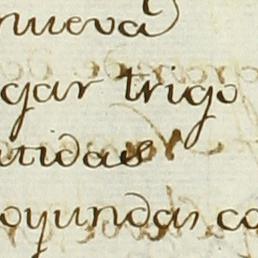 nueva
gar trigo
atidas
oyundas co